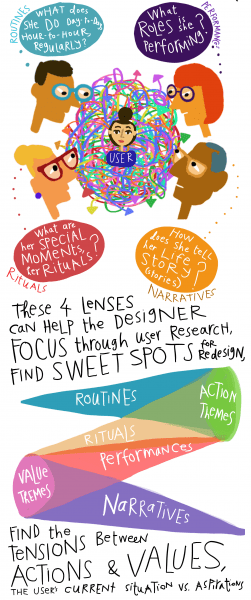 ROUTINES
WHAT does
she DO DAY-to-DAY
HOUR-to-HOUR,
REGULARLY?
PERFORMANCES
WHAT
ROLES is she
PERFORMING?
USER
What are
her SPECIAL
MOMENTS,
her RITUALS?
RITUALS
How
does she tell
her LIFE
STORY?
(stories)
NARRATIVES
These 4 LENSES
can HELP the DESIGNER
FOCUS through user Research,
FIND SWEET SPOTS for Redesign,
ROUTINES
ACTION
THEMES
RITUALS
Performances
VALUE
THEMES
NARRATIVES
FIND the
TENSIONS Between
ACTIONS & VALUES,
THE USER'S CURRENT SITUATION VS. ASPIRATIONS